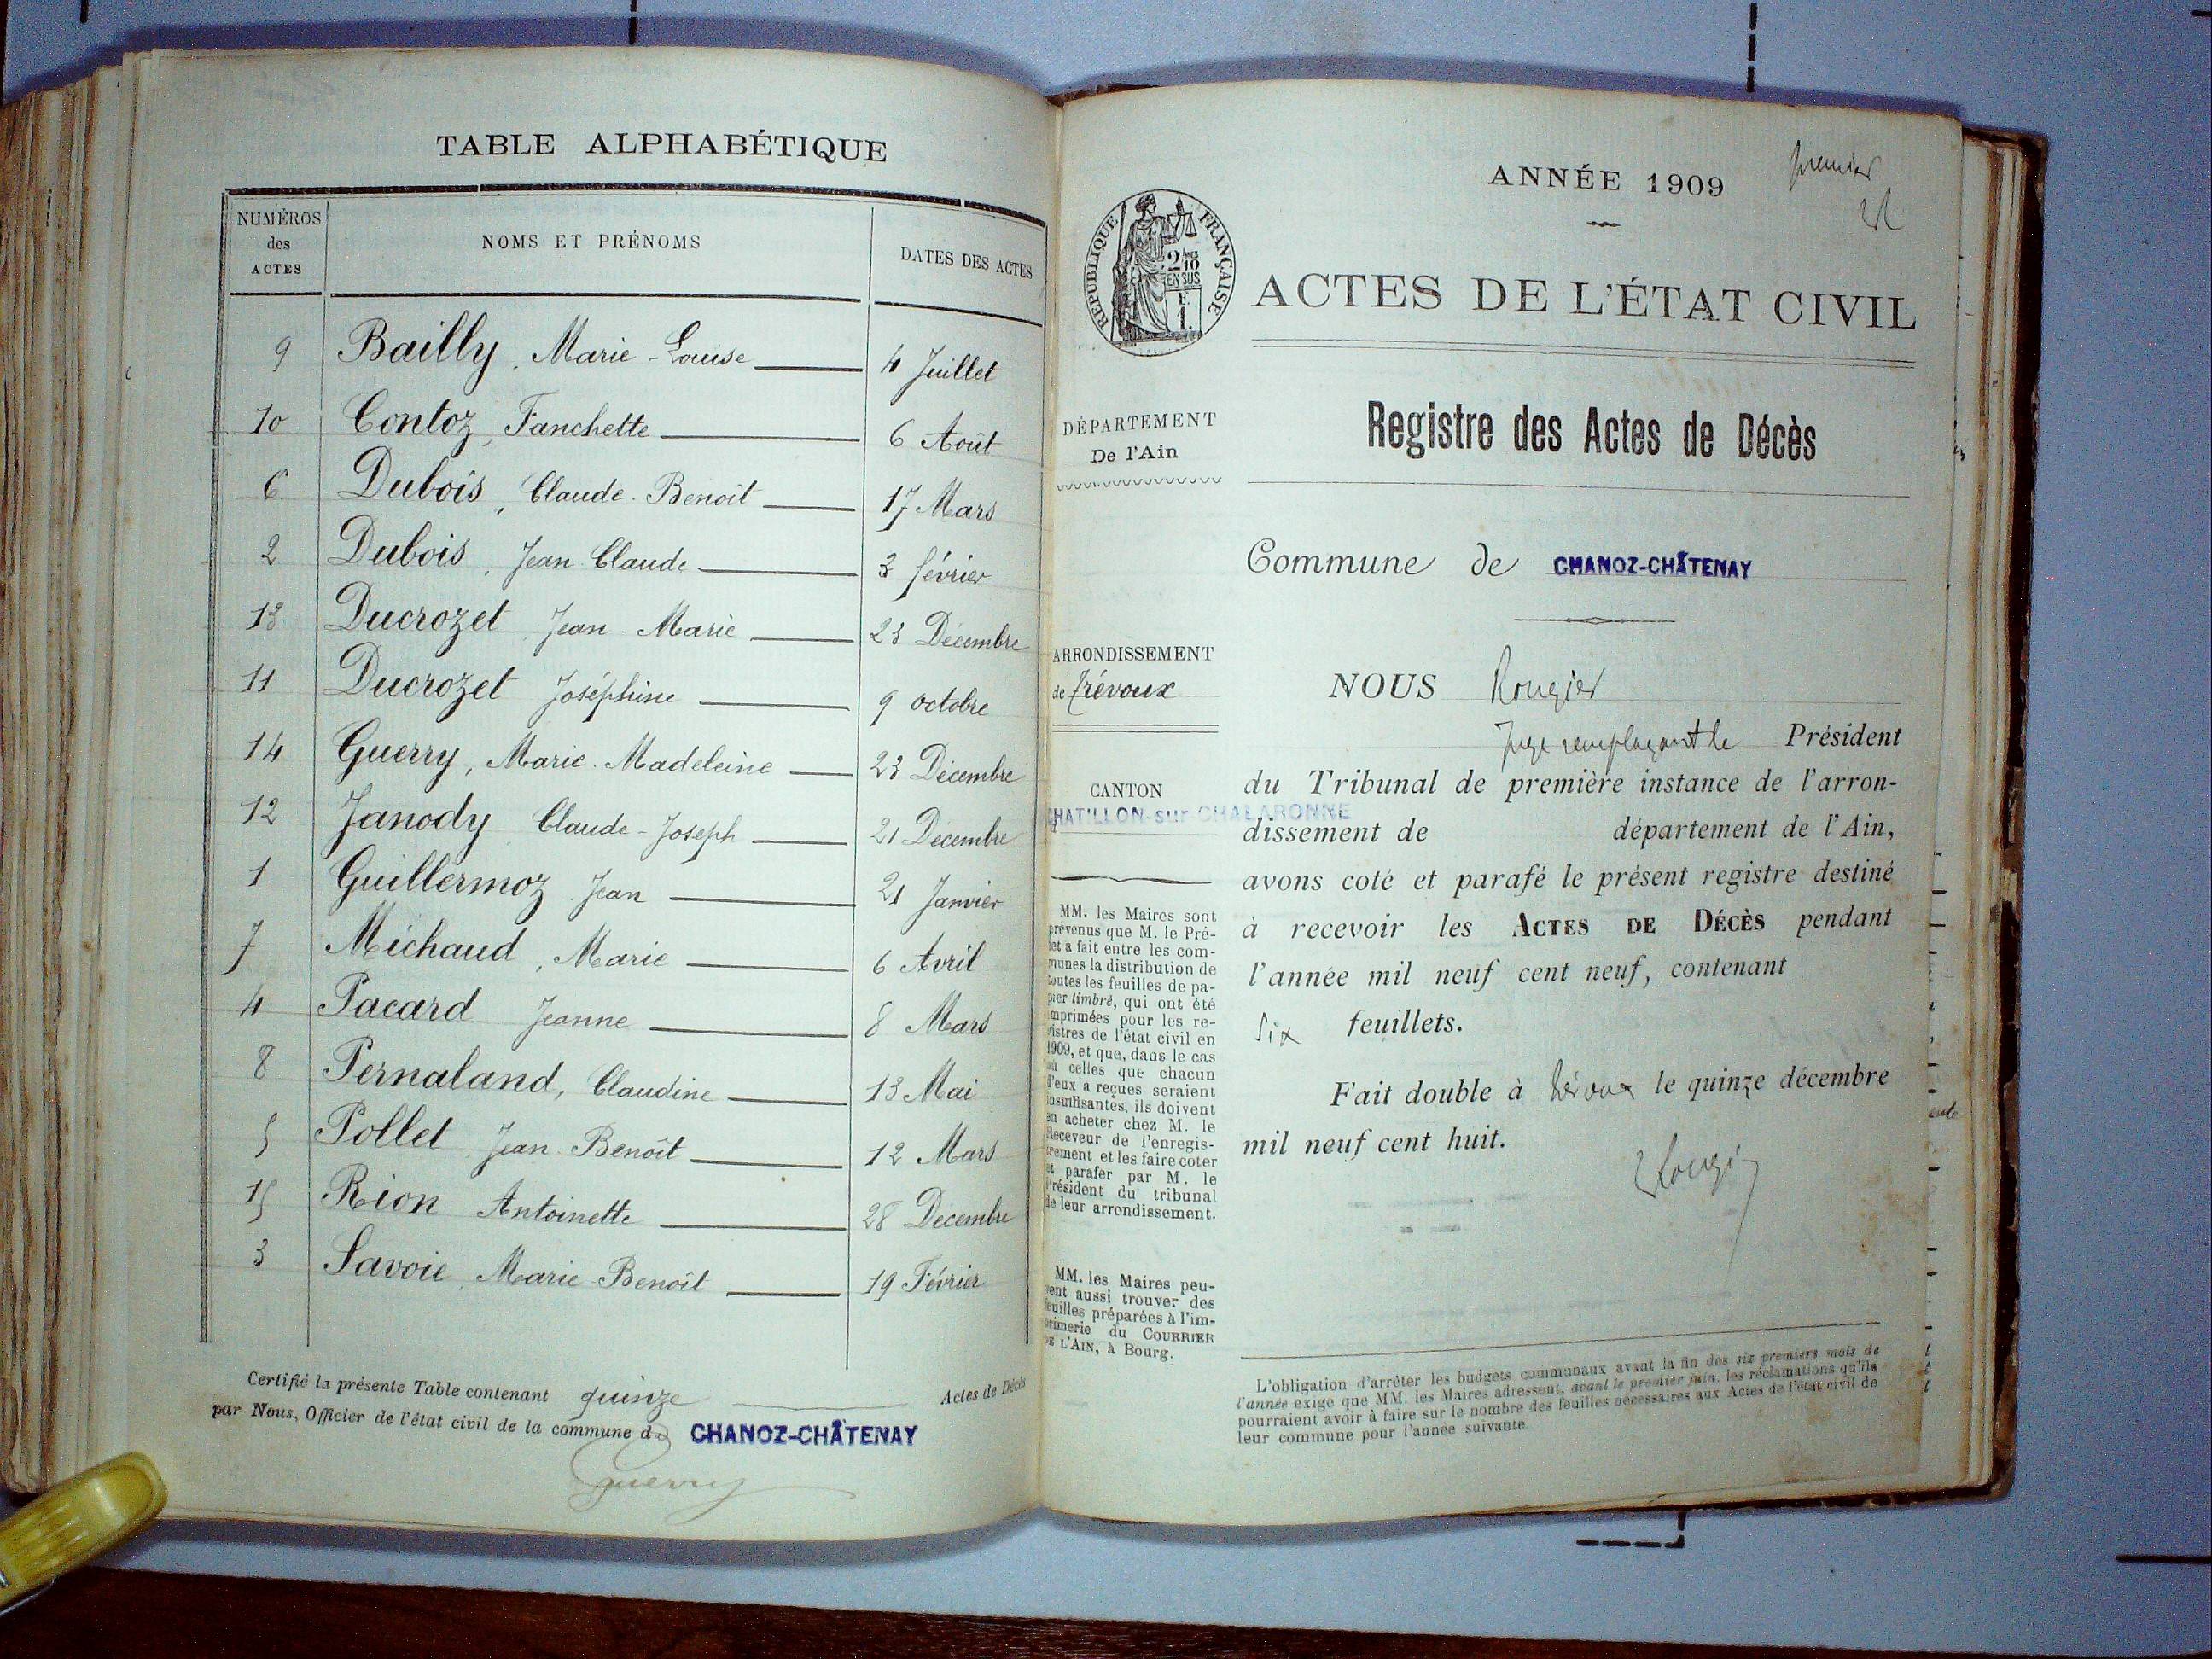 TABLE ALPHABÉTIQUE
NUMÉROS
des
ACTES
NOMS ET PRÉNOMS
DATES DES ACTES
9 Bailly, Marie-Louise 4 Juillet
10 Contoz, Fanchette 6 Août
6 Dubois, Claude-Benoît 17 Mars
2 Dubois, Jean Claude 3 février
13 Ducrozet Jean-Marie 23 Décembre
11 Ducrozet Joséphine 9 octobre
14 Guerry, Marie-Madeleine 23 Décembre
12 Janody Claude-Joseph 21 Décembre
1 Guillermoz Jean 21 Janvier
7 Michaud, Marie 6 Avril
4 Pacard Jeanne 8 Mars
8 Pernaland, Claudine 13 Mai
5 Pollet Jean-Benoît 12 Mars
15 Rion Antoinette 28 Décembre
3 Savoie Marie-Benoît 19 Février
Certifié la présente Table contenant quinze Actes de Décès
par Nous, Officier de l'état civil de la commune de CHANOZ-CHÂTENAY
Guerry
ANNÉE 1909
premier
RÉPUBLIQUE FRANÇAISE
2/10
EN SUS
ACTES DE L'ÉTAT CIVIL
Registre des Actes de Décès
DÉPARTEMENT
De l'Ain
Commune de CHANOZ-CHÂTENAY
ARRONDISSEMENT
de Trévoux
CANTON
CHATILLON-sur-CHALARONNE
NOUS Rougier
Juge remplaçant le Président
du Tribunal de première instance de l'arron-
dissement de département de l'Ain,
avons coté et parafé le présent registre destiné
à recevoir les ACTES DE DÉCÈS pendant
l'année mil neuf cent neuf, contenant
six feuillets.
Fait double à Trévoux le quinze décembre
mil neuf cent huit.
Rougier
MM. les Maires sont
prévenus que M. le Pré-
fet a fait entre les com-
munes la distribution de
toutes les feuilles de pa-
pier timbré, qui ont été
imprimées pour les re-
gistres de l'état civil en
1909, et que, dans le cas
où celles que chacun
d'eux a reçues seraient
insuffisantes, ils doivent
en acheter chez M. le
Receveur de l'enregis-
trement et les faire coter
et parafer par M. le
Président du tribunal
de leur arrondissement.
MM. les Maires peu-
vent aussi trouver des
feuilles préparées à l'im-
primerie du COURRIER
DE L'AIN, à Bourg.
L'obligation d'arrêter les budgets communaux avant la fin des six premiers mois de
l'année exige que MM. les Maires adressent, avant le premier juin, les réclamations qu'ils
pourraient avoir à faire sur le nombre des feuilles nécessaires aux Actes de l'état civil de
leur commune pour l'année suivante.